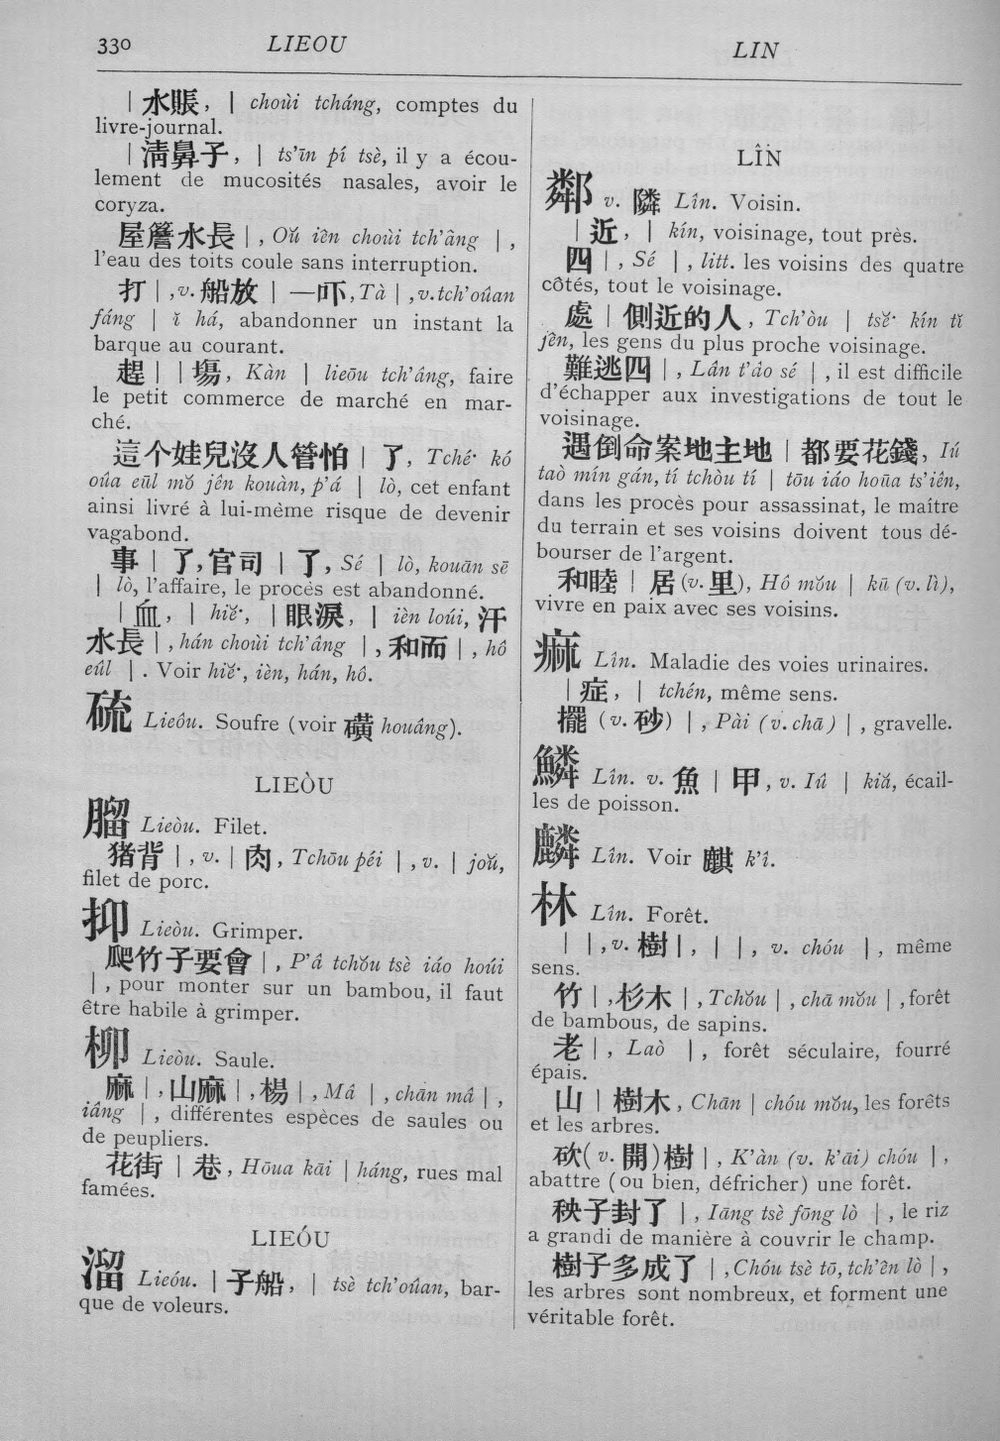 330 LIEOU LIN
| 水賬, | choùi tcháng, comptes du
livre-journal.
| 淸鼻子, | ts'īn pí tsè, il y a écou-
lement de mucosités nasales, avoir le
coryza.
屋簷水長 | , Oŭ iên choùi tch'âng | ,
l'eau des toits coule sans interruption.
打 | ,v. 船放 | 一吓, Tà | ,v. tch'oûan
fáng | ĭ há, abandonner un instant la
barque au courant.
趕 | | 塲, Kàn | lieōu tch'áng, faire
le petit commerce de marché en mar-
ché.
這个娃兒沒人管怕 | 了, Tché· kó
oûa eûl mŏ jên kouàn, p'á | lò, cet enfant
ainsi livré à lui-mème risque de devenir
vagabond.
事 | 了, 官司 | 了, Sé | lò, kouān sē
| lò, l'affaire, le procès est abandonné.
| 血, | hiĕ·, | 眼淚, | ièn loúi, 汗
水長 | , hán choùi tch'âng | , 和而 | , hô
eûl | . Voir hiĕ·, ièn, hán, hô.
硫 Lieôu. Soufre (voir 磺 houâng).
LIEÒU
膼 Lieòu. Filet.
猪背 | , v. | 肉, Tchōu péi | , v. | joŭ,
filet de porc.
抑 Lieòu. Grimper.
爬竹子要會 | , P'â tchŏu tsè iáo hoúi
| , pour monter sur un bambou, il faut
être habile à grimper.
柳 Lieòu. Saule.
麻 | , 山麻 | , 楊 | , Mâ | , chān mâ | ,
iâng | , différentes espèces de saules ou
de peupliers.
花街 | 巷, Hōua kāi | háng, rues mal
famées.
LIEÓU
溜 Lieóu. | 子船, | tsè tch'oûan, bar-
que de voleurs.
LÎN
鄰 v. 隣 Lîn. Voisin.
| 近, | kín, voisinage, tout près.
四 | , Sé | , litt. les voisins des quatre
côtés, tout le voisinage.
處 | 側近的人, Tch'òu | tsĕ· kín tĭ
jên, les gens du plus proche voisinage.
難逃四 | , Lân t'âo sé | , il est difficile
d'échapper aux investigations de tout le
voisinage.
遇倒命案地主地 | 都要花錢, Iú
taò mín gán, tí tchòu tí | tōu iáo hoūa ts'iên,
dans les procès pour assassinat, le maître
du terrain et ses voisins doivent tous dé-
bourser de l'argent.
和睦 | 居 (v. 里), Hô mŏu | kū (v. lì),
vivre en paix avec ses voisins.
痳 Lîn. Maladie des voies urinaires.
| 症, | tchén, même sens.
擺 (v. 砂) | , Pài (v. chā) | , gravelle.
鱗 Lîn. v. 魚 | 甲, v. Iû | kiă, écail-
les de poisson.
麟 Lîn. Voir 麒 k'î.
林 Lîn. Forêt.
| | , v. 樹 | , | | , v. chóu | , même
sens.
竹 | , 杉木 | , Tchŏu | , chā mŏu | , forêt
de bambous, de sapins.
老 | , Laò | , forêt séculaire, fourré
épais.
山 | 樹木, Chān | chóu mŏu, les forêts
et les arbres.
砍 ( v. 開 ) 樹 | , K'àn (v. k'āi) chóu | ,
abattre (ou bien, défricher) une forêt.
秧子封了 | , Iāng tsè fōng lò | , le riz
a grandi de manière à couvrir le champ.
樹子多成了 | , Chóu tsè tō, tch'ên lò | ,
les arbres sont nombreux, et forment une
véritable forêt.